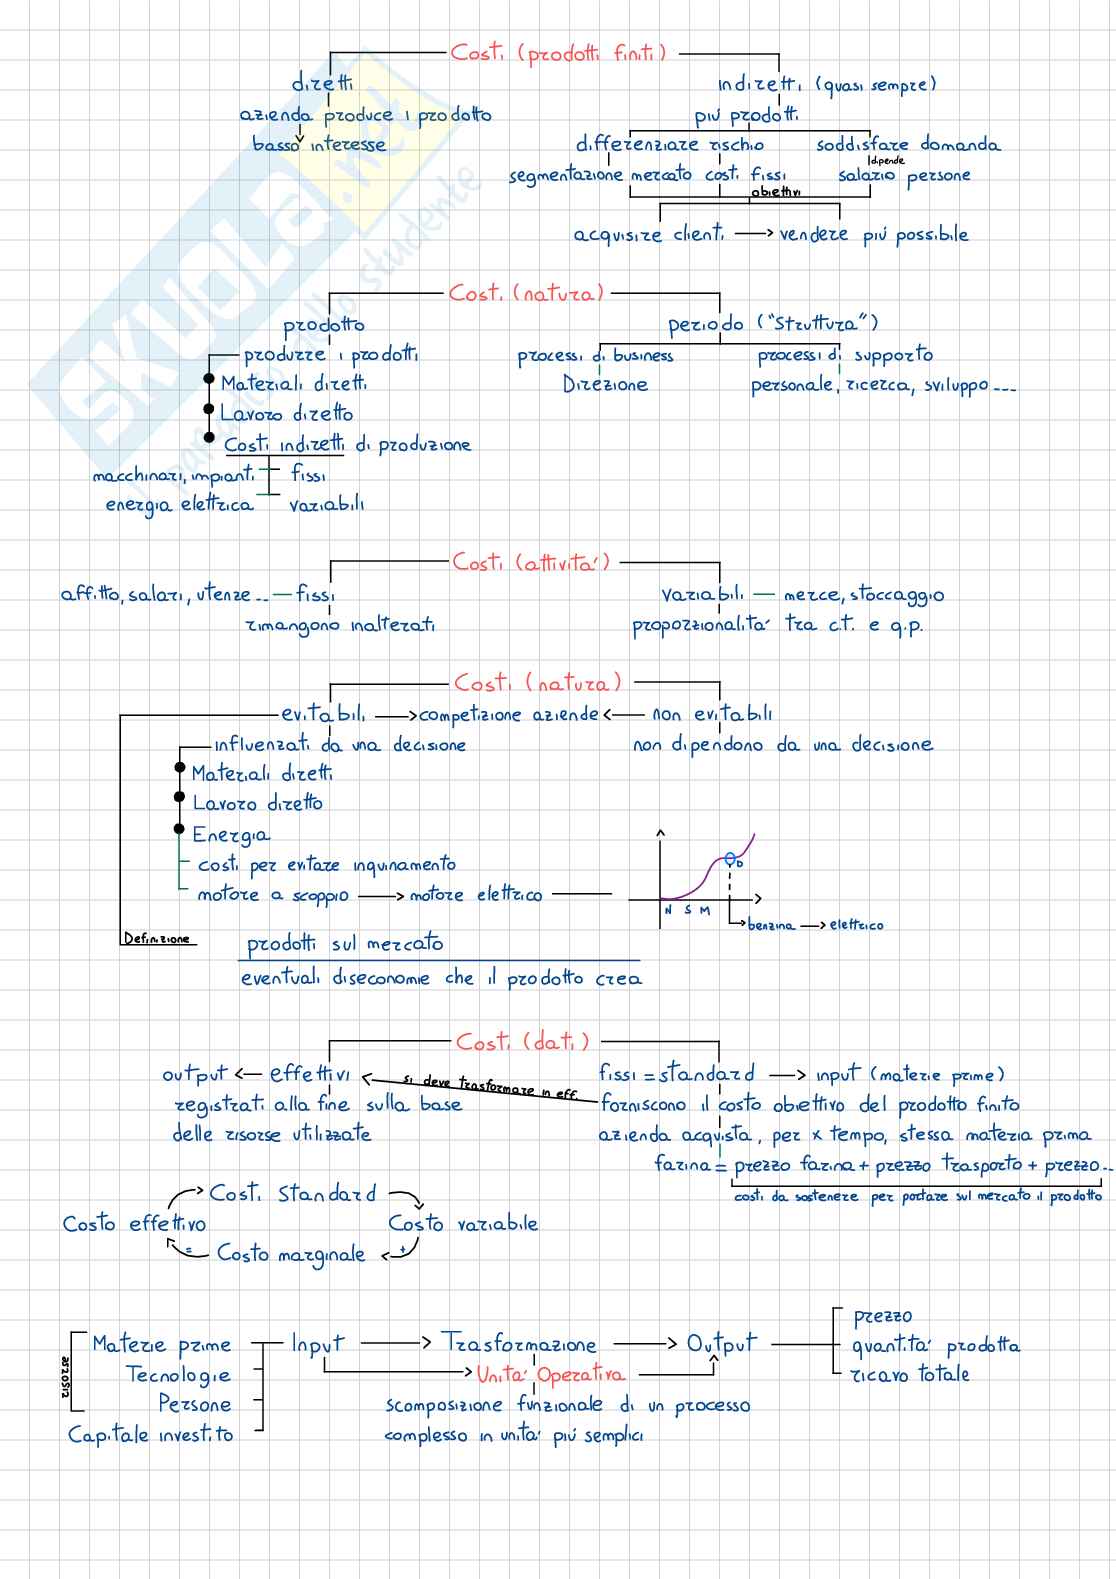 Costi (prodotti finiti)
diretti
indiretti (quasi sempre)
azienda produce 1 prodotto
più prodotti
basso interesse
differenziare rischio
soddisfare domanda
dipende
segmentazione mercato costi fissi
salario persone
obiettivi
acquisire clienti → vendere più possibile
Costi (natura)
prodotto
periodo ("Struttura")
produrre i prodotti
processi di business
processi di supporto
Materiali diretti
Direzione
personale, ricerca, sviluppo ---
Lavoro diretto
Costi indiretti di produzione
macchinari, impianti
fissi
energia elettrica
variabili
Costi (attività)
affitto, salari, utenze .. — fissi
variabili — merce, stoccaggio
rimangono inalterati
proporzionalità tra c.t. e q.p.
Costi (natura)
evitabili → competizione aziende ← non evitabili
influenzati da una decisione
non dipendono da una decisione
Materiali diretti
Lavoro diretto
Energia
costi per evitare inquinamento
motore a scoppio → motore elettrico
D
N S M
benzina → elettrico
Definizione
prodotti sul mercato
eventuali diseconomie che il prodotto crea
Costi (dati)
output ← effettivi
si deve trasformare in eff.
fissi = standard → input (materie prime)
registrati alla fine sulla base
forniscono il costo obiettivo del prodotto finito
delle risorse utilizzate
azienda acquista, per x tempo, stessa materia prima
farina = prezzo farina + prezzo trasporto + prezzo ..
costi da sostenere per portare sul mercato il prodotto
Costi Standard
Costo effettivo
Costo variabile
= Costo marginale +
prezzo
Materie prime
Input → Trasformazione → Output
quantità prodotta
risorse
Tecnologie
Unità Operativa
ricavo totale
Persone
scomposizione funzionale di un processo
Capitale investito
complesso in unità più semplici
SKUOLA.net
dello studente